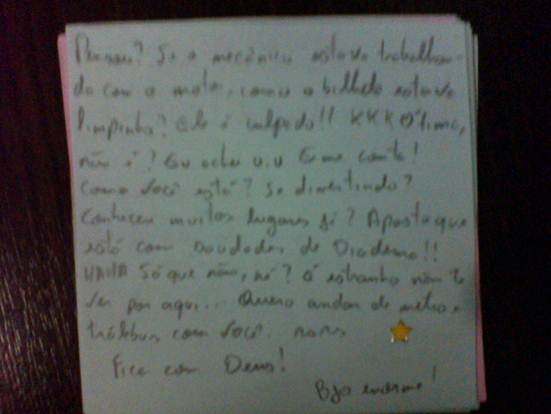 Pensou? Se o mecânico estava trabalhan-
do com o motor, como o bilhete estava
limpinho? Ele é culpado!! KKK Ótimo,
não é? Eu achei u.u E me conte!
Como você está? Se divertindo?
Conheceu muitos lugares já? Aposto que
está com saudades de Diadema!!
HAHA Só que não, né? É estranho não te
ver por aqui... Quero andar de metrô e
trólebus com você. rsrsrs
Fica com Deus!
Bjo enorme!